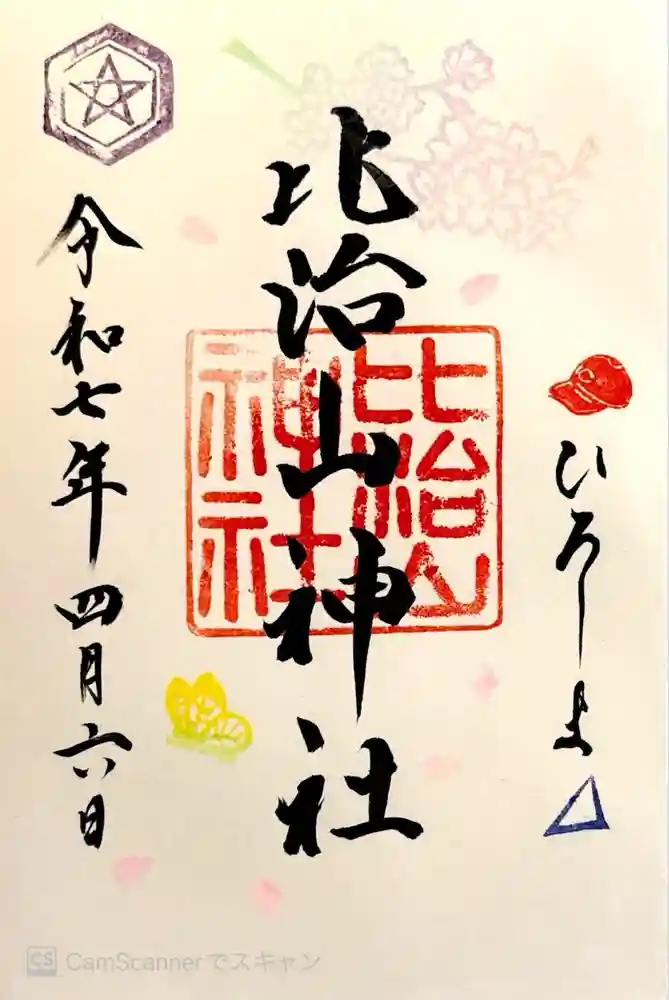 ひろしま
比治山神社
比治山
神社
令和七年四月六日
CS CamScannerでスキャン